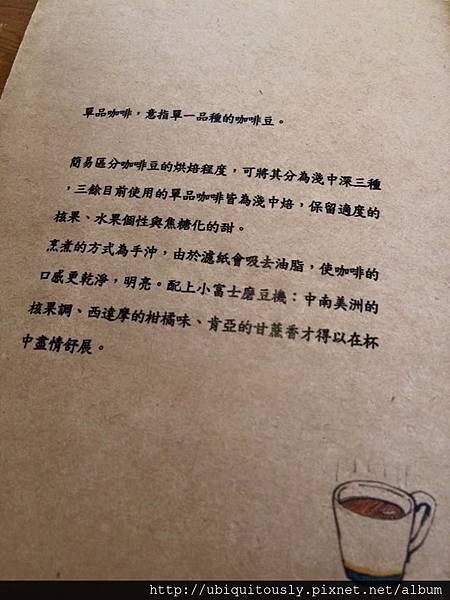 單品咖啡，意指單一品種的咖啡豆。
簡易區分咖啡豆的烘焙程度，可將其分為淺中深三種
，三餘目前使用的單品咖啡皆為淺中焙，保留適度的
核果、水果個性與焦糖化的甜。
烹煮的方式為手沖，由於濾紙會吸去油脂，使咖啡的
口感更乾淨，明亮。配上小富士磨豆機：中南美洲的
核果調、西達摩的柑橘味、肯亞的甘蔗香才得以在杯
中盡情舒展。
http://ubiquitously.pixnet.net/album